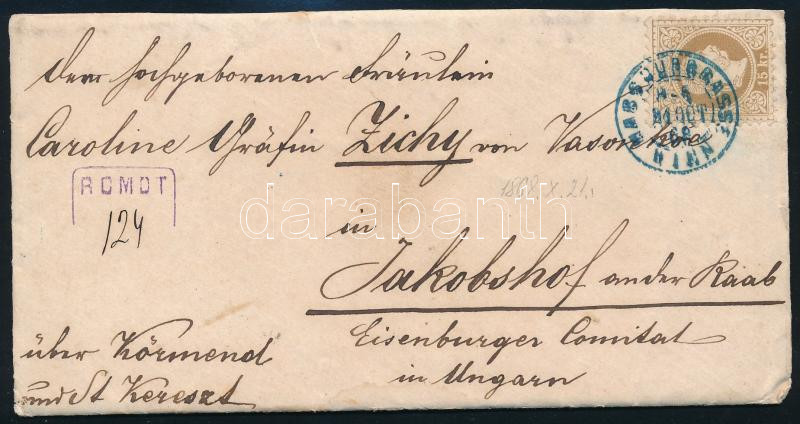 Der Hochgeborenen Fräulein
Caroline Gräfin Zichy von Vasonkeö
in
Jakobshof an der Raab
Eisenburger Comitat
in Ungarn
über Körmend
und St Kereszt
RCMDT
124
1868. X. 21.
15 kr
HABSBURGGASSE
21 OCT
68
WIEN
darabanth